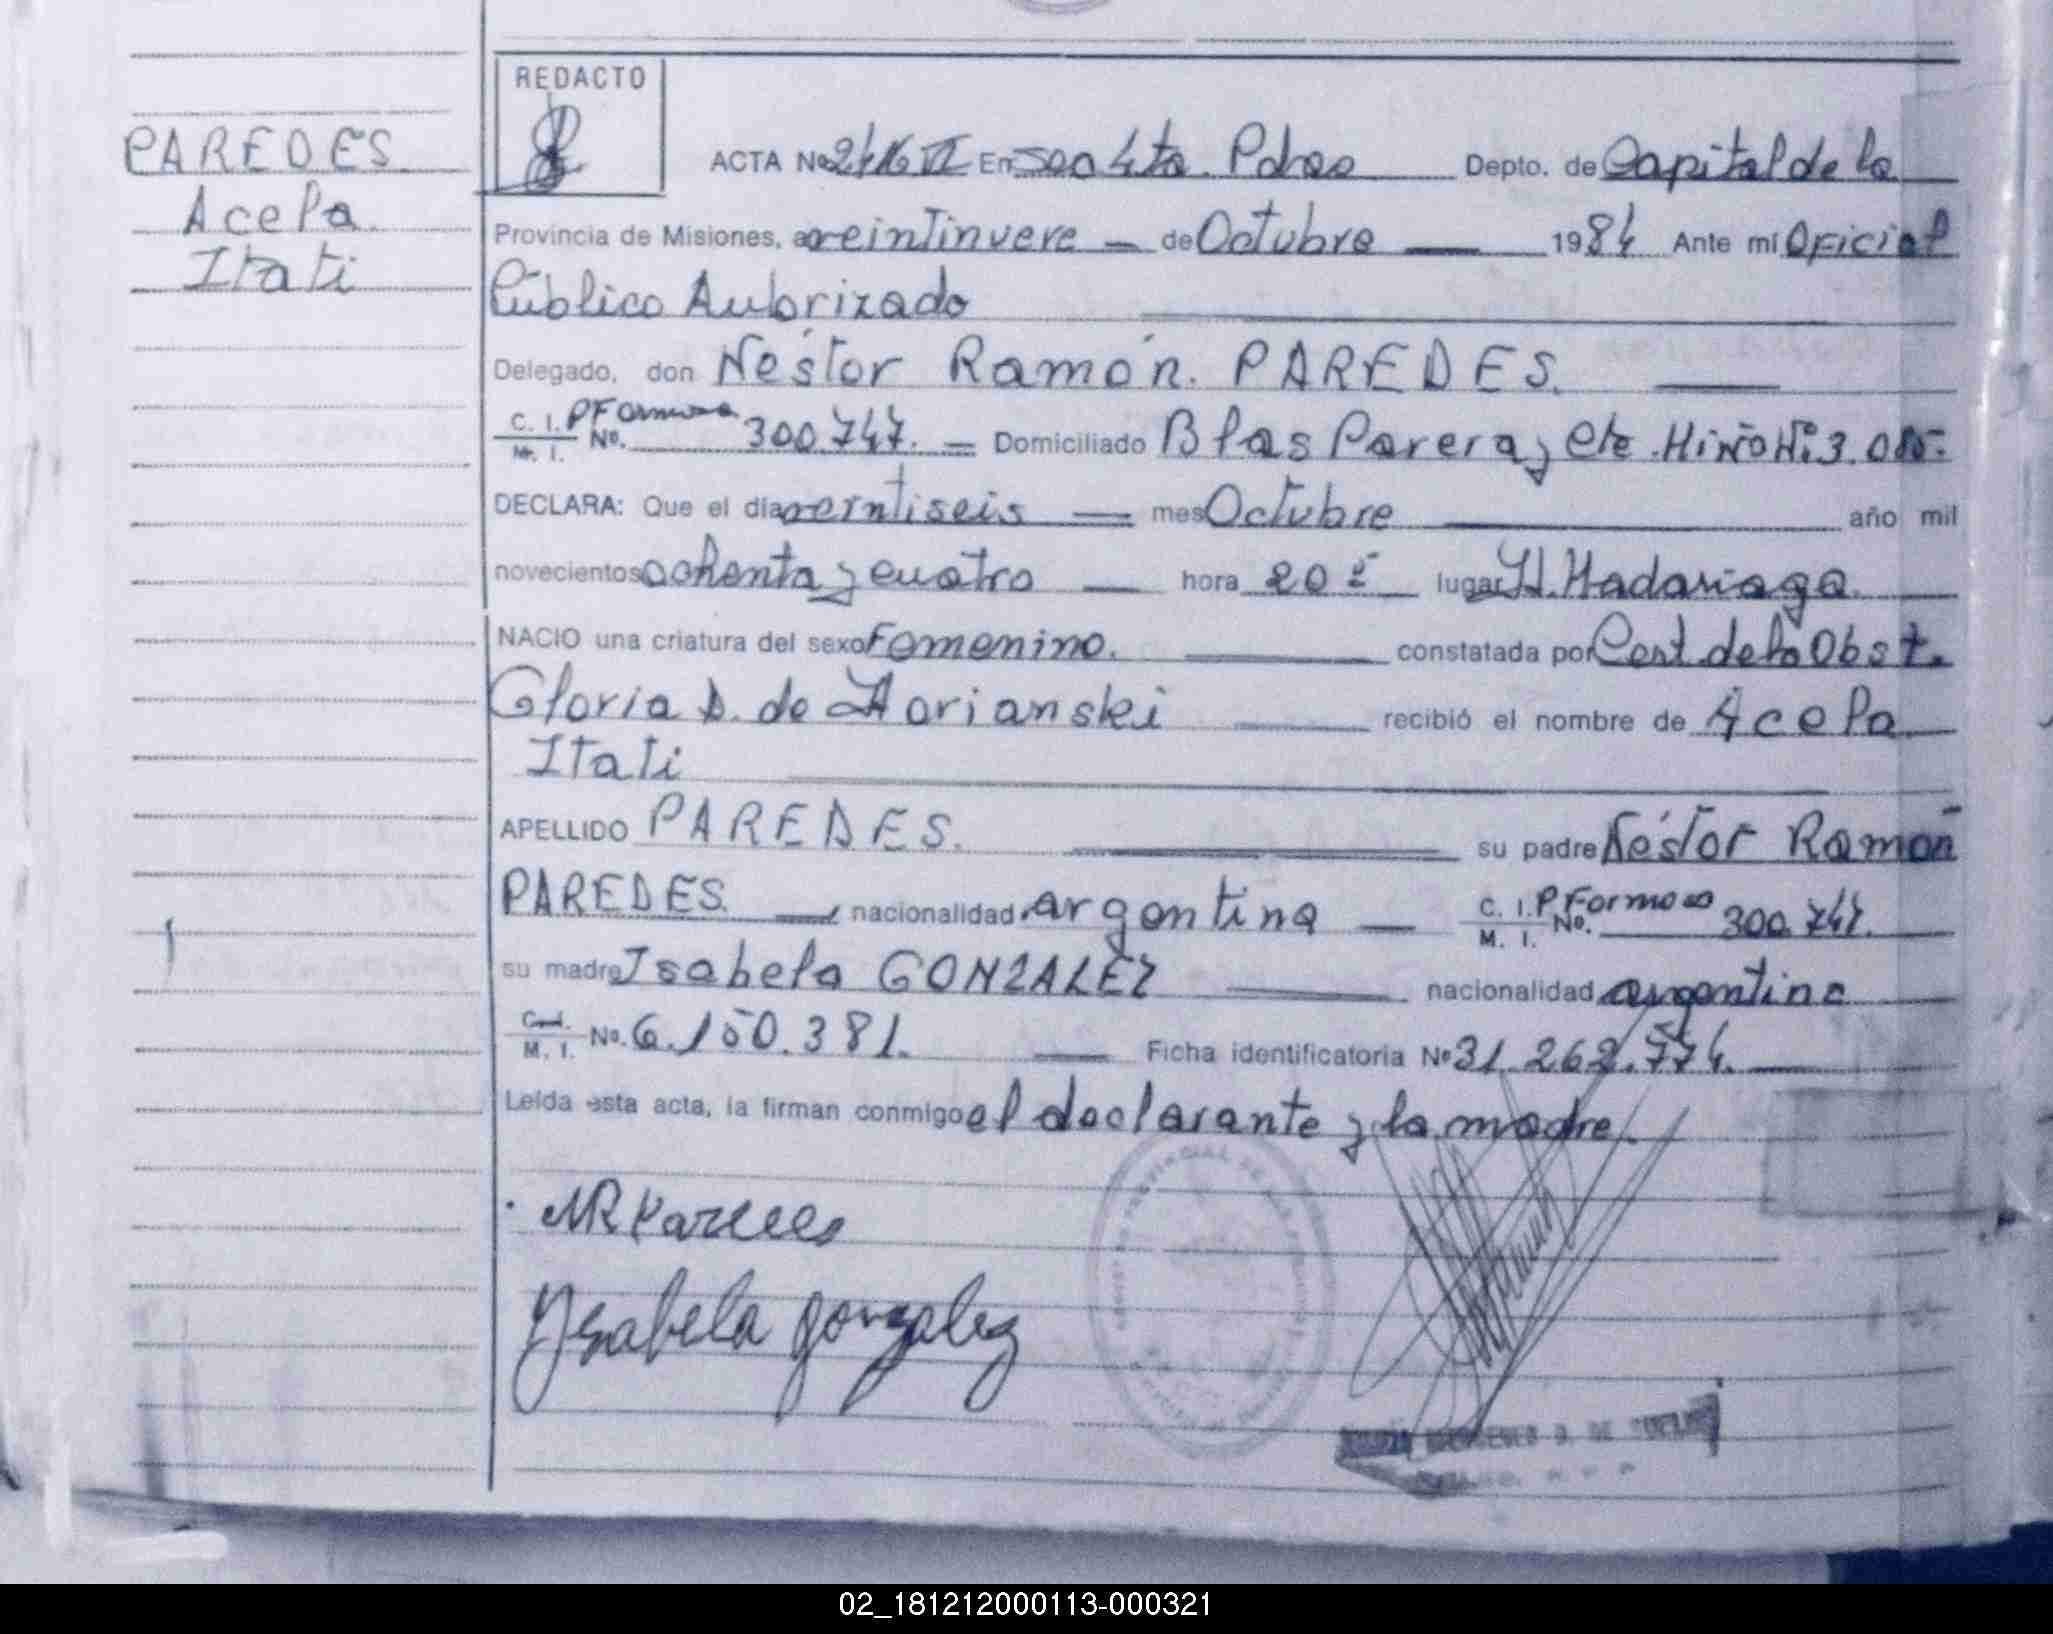 REDACTO
PAREDES
Acela
Itati
ACTA No En Sec 4ta Pdas Depto. de Capital de la
Provincia de Misiones, a veintinueve de Octubre 1984 Ante mí Oficial
Público Autorizado
Delegado, don Néstor Ramón. PAREDES.
C. I. P Formosa No. 300.747. Domiciliado Blas Parera y
M. I.
DECLARA: Que el día veintiseis mes Octubre año mil
novecientos ochenta y cuatro hora 20 lugar H. Madariaga.
NACIO una criatura del sexo Femenino. constatada por Cert. de la Obst.
Gloria D. de recibió el nombre de Acela
Itati
APELLIDO PAREDES. su padre Néstor Ramón
PAREDES. nacionalidad argentina C. I. P Formosa No. 300.747.
M. I.
su madre Isabela GONZALEZ nacionalidad argentina
M. I. No. 6.150.381. Ficha identificatoria No 31.262.774.
Leída esta acta, la firman conmigo el declarante y la madre.
NR Paredes
Ysabela gonzalez
02_181212000113-000321